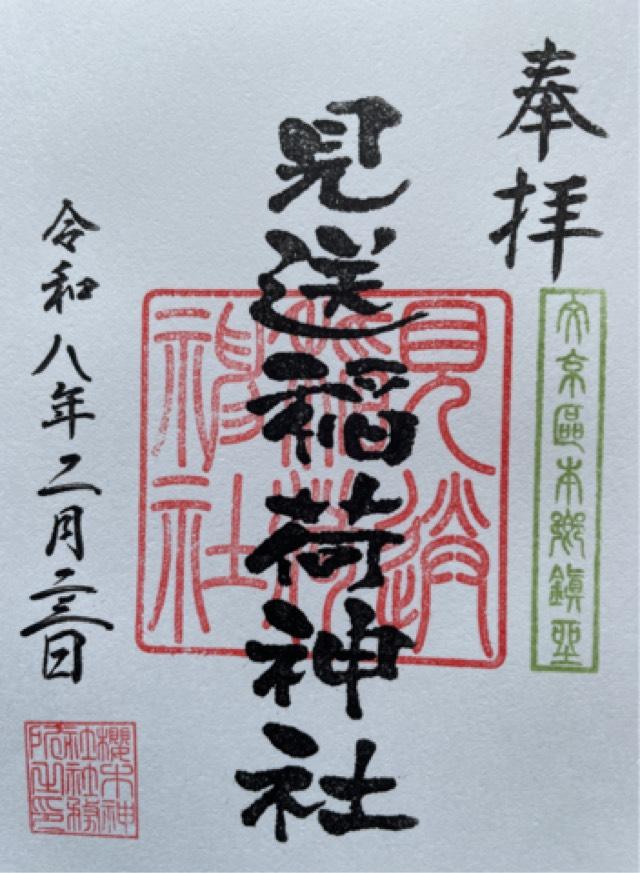 奉拝
文京區本鄉鎮坐
見送稲荷神社
見送稻荷神社
令和八年二月二三日
櫻木神社社務所之印